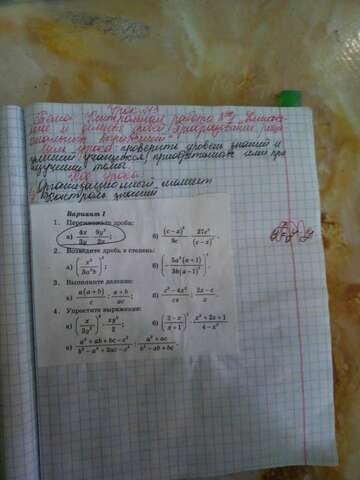 Урок №3
Тема: Контрольная работа №2 „Умноже-
ние и деление дробей. Преобразование раци-
ональных выражений"
Цель урока: проверить уровень знаний и
умений учащихся, приобретённых ими при
изучении темы.
Ход урока
1. Организационный момент
2. Контроль знаний
Вариант 1
1. Перемножьте дроби:
а) 4x/3y · 9y²/2x; б) (c − a)²/9c · 27c³/(c − a)³.
2. Возведите дробь в степень:
а) (x³/3a²b)³; б) (−5a²(x + 1)³/3b(a − 1)²)².
3. Выполните деление:
а) a(a + b)/c : (a + b)/ac; б) (c² − 4x²)/cx : (2x − c)/x.
4. Упростите выражение:
а) (x/2y²)³ : xy²/2; б) ((2 − x)/(x + 1))² · (x² + 2x + 1)/(4 − x²)
в) (a² + ab + bc − c²)/(b² − a² + 2ac − c²) : (a² + ac)/(b² − ab + bc)